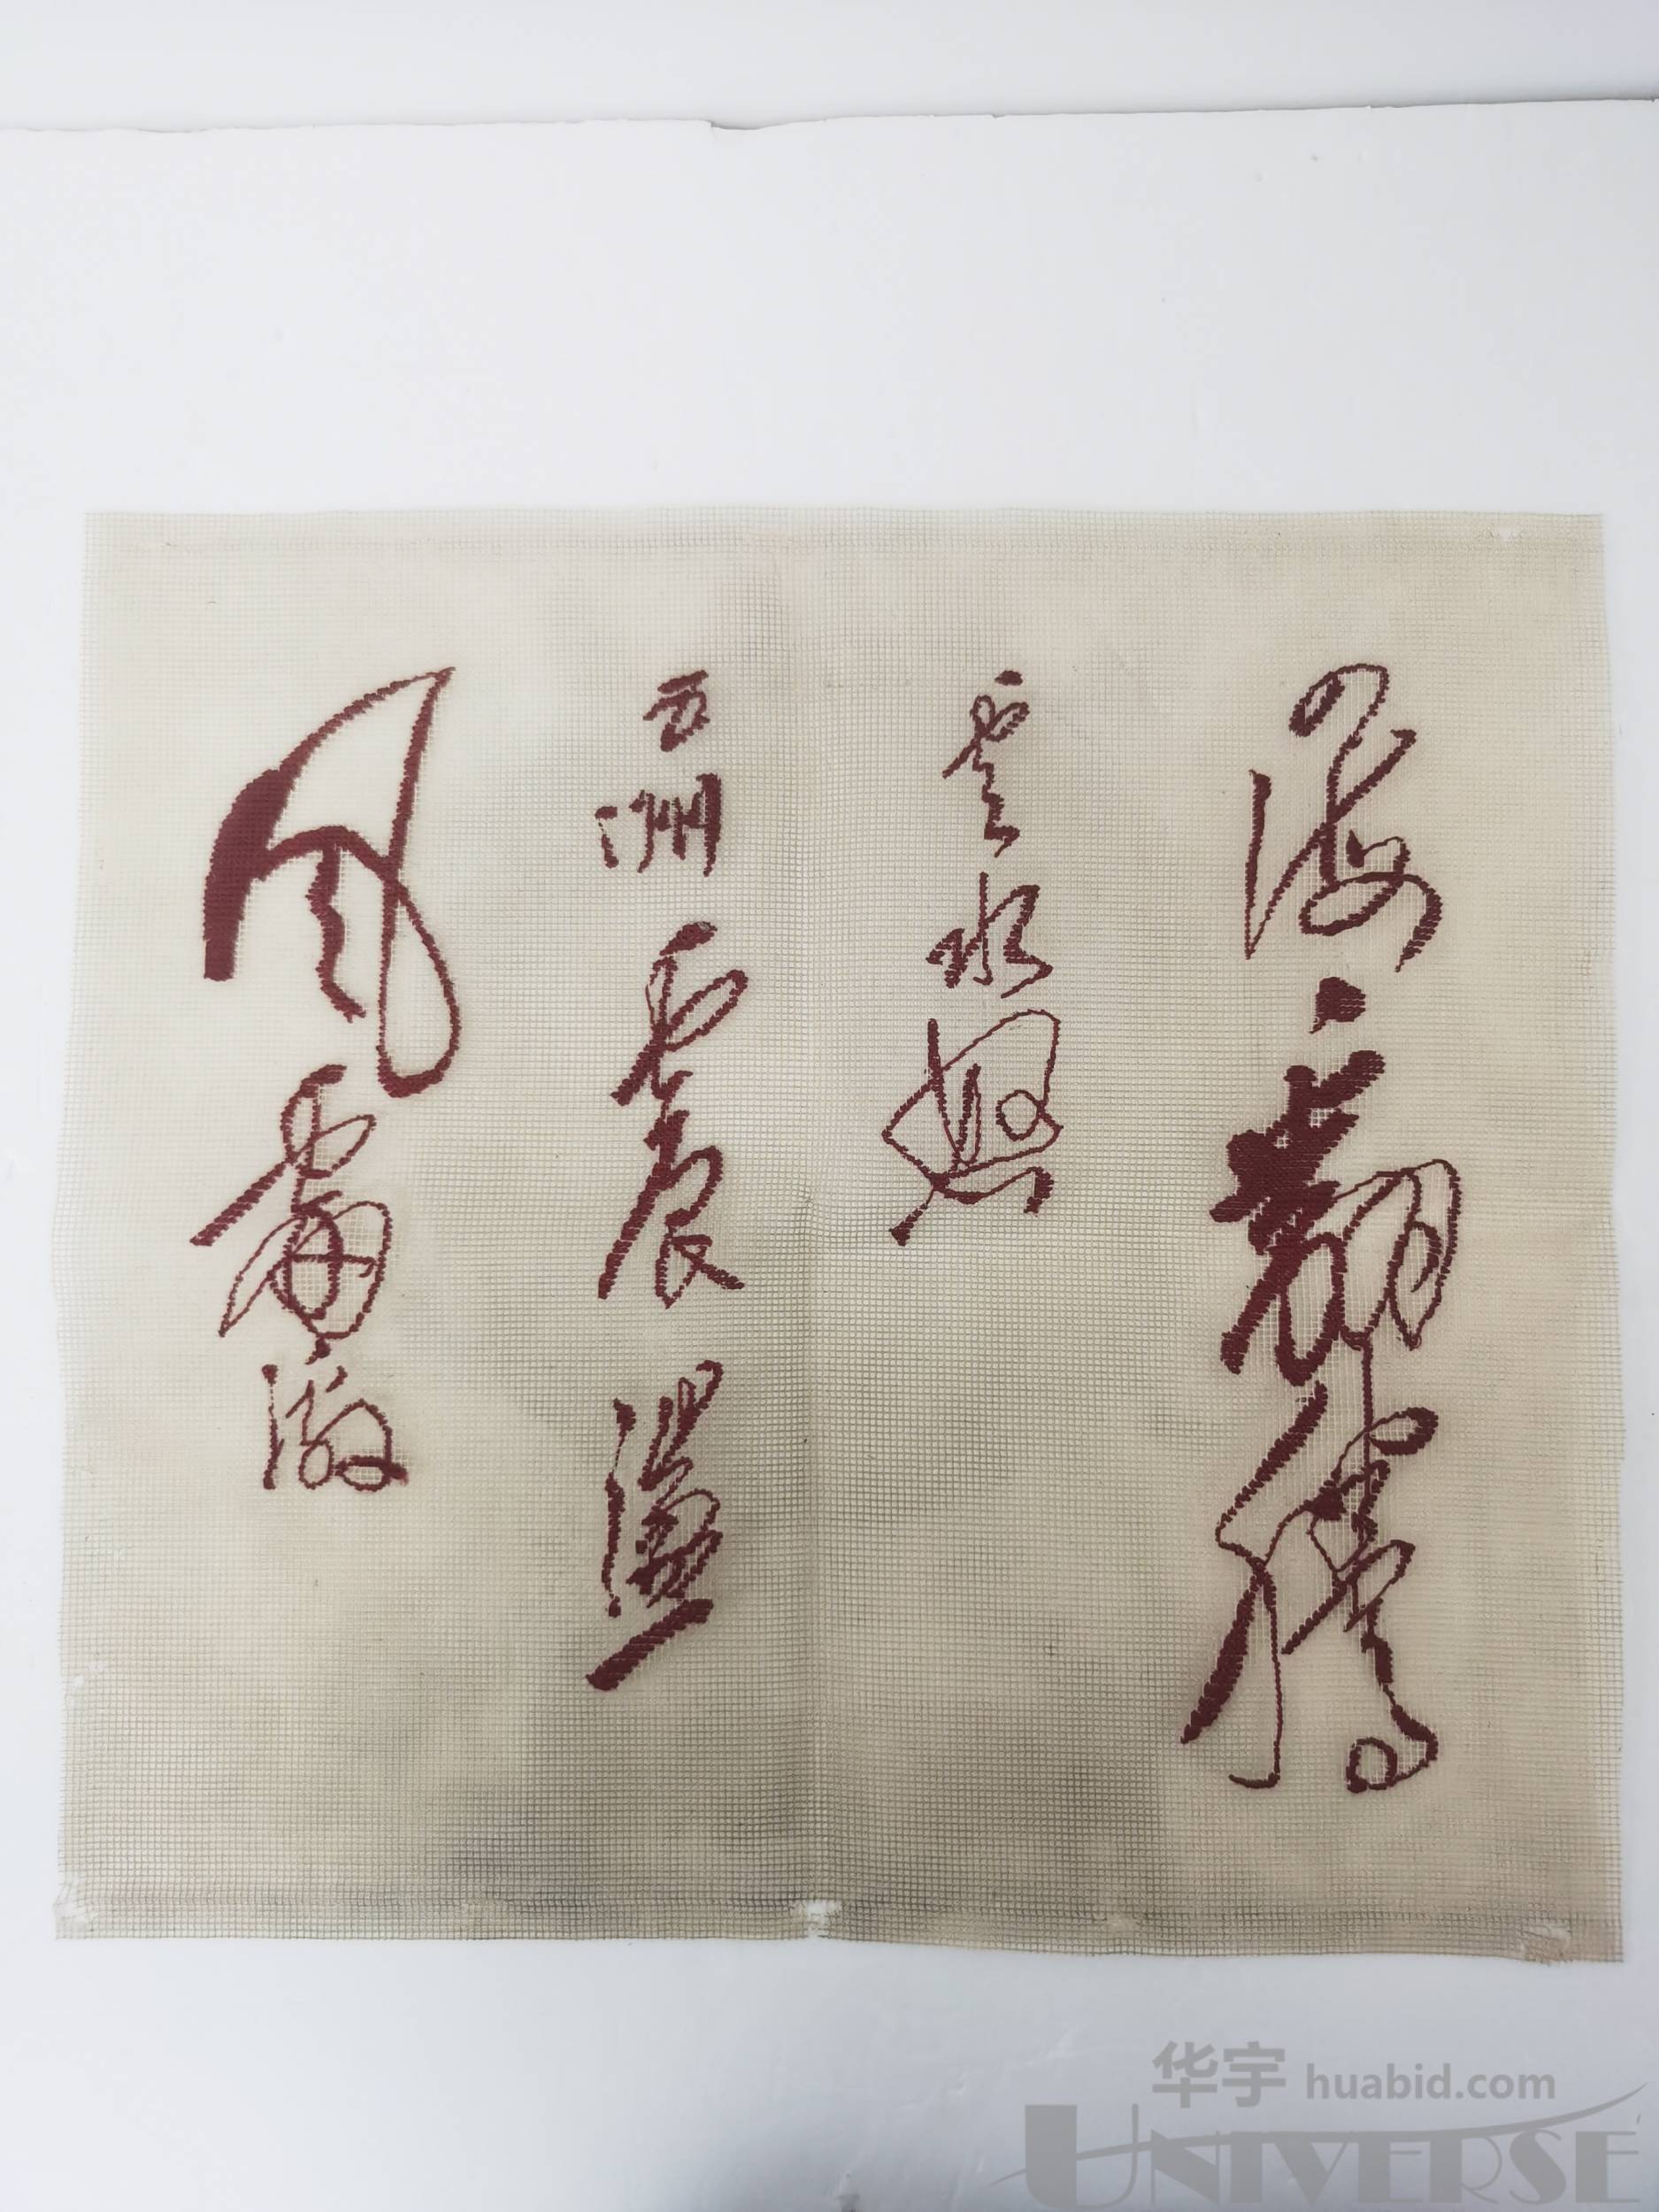 四海翻騰
雲水怒
五洲震盪
風雷激
华宇 huabid.com
UNIVERSE